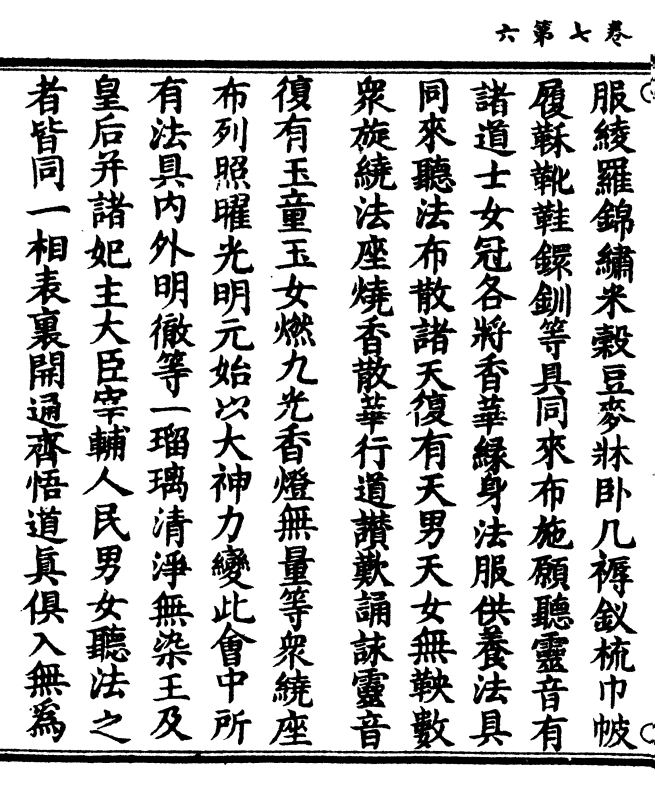 卷七第六
服綾羅錦繡米穀豆麥牀卧几褥釵梳巾帔
履靴鞋鐶釧等具同來布施願聽靈音有
諸道士女冠各將香華緣身法服供養法具
同來聽法布散諸天復有天男天女無鞅數
衆旋繞法座燒香散華行道讃歎誦詠靈音
復有玉童玉女燃九光香燈無量等衆繞座
布列照曜光明元始以大神力變此會中所
有法具內外明徹等一瑠璃清淨無染王及
皇后并諸妃主大臣宰輔人民男女聽法之
者皆同一相表裏開通齊悟道眞俱入無爲